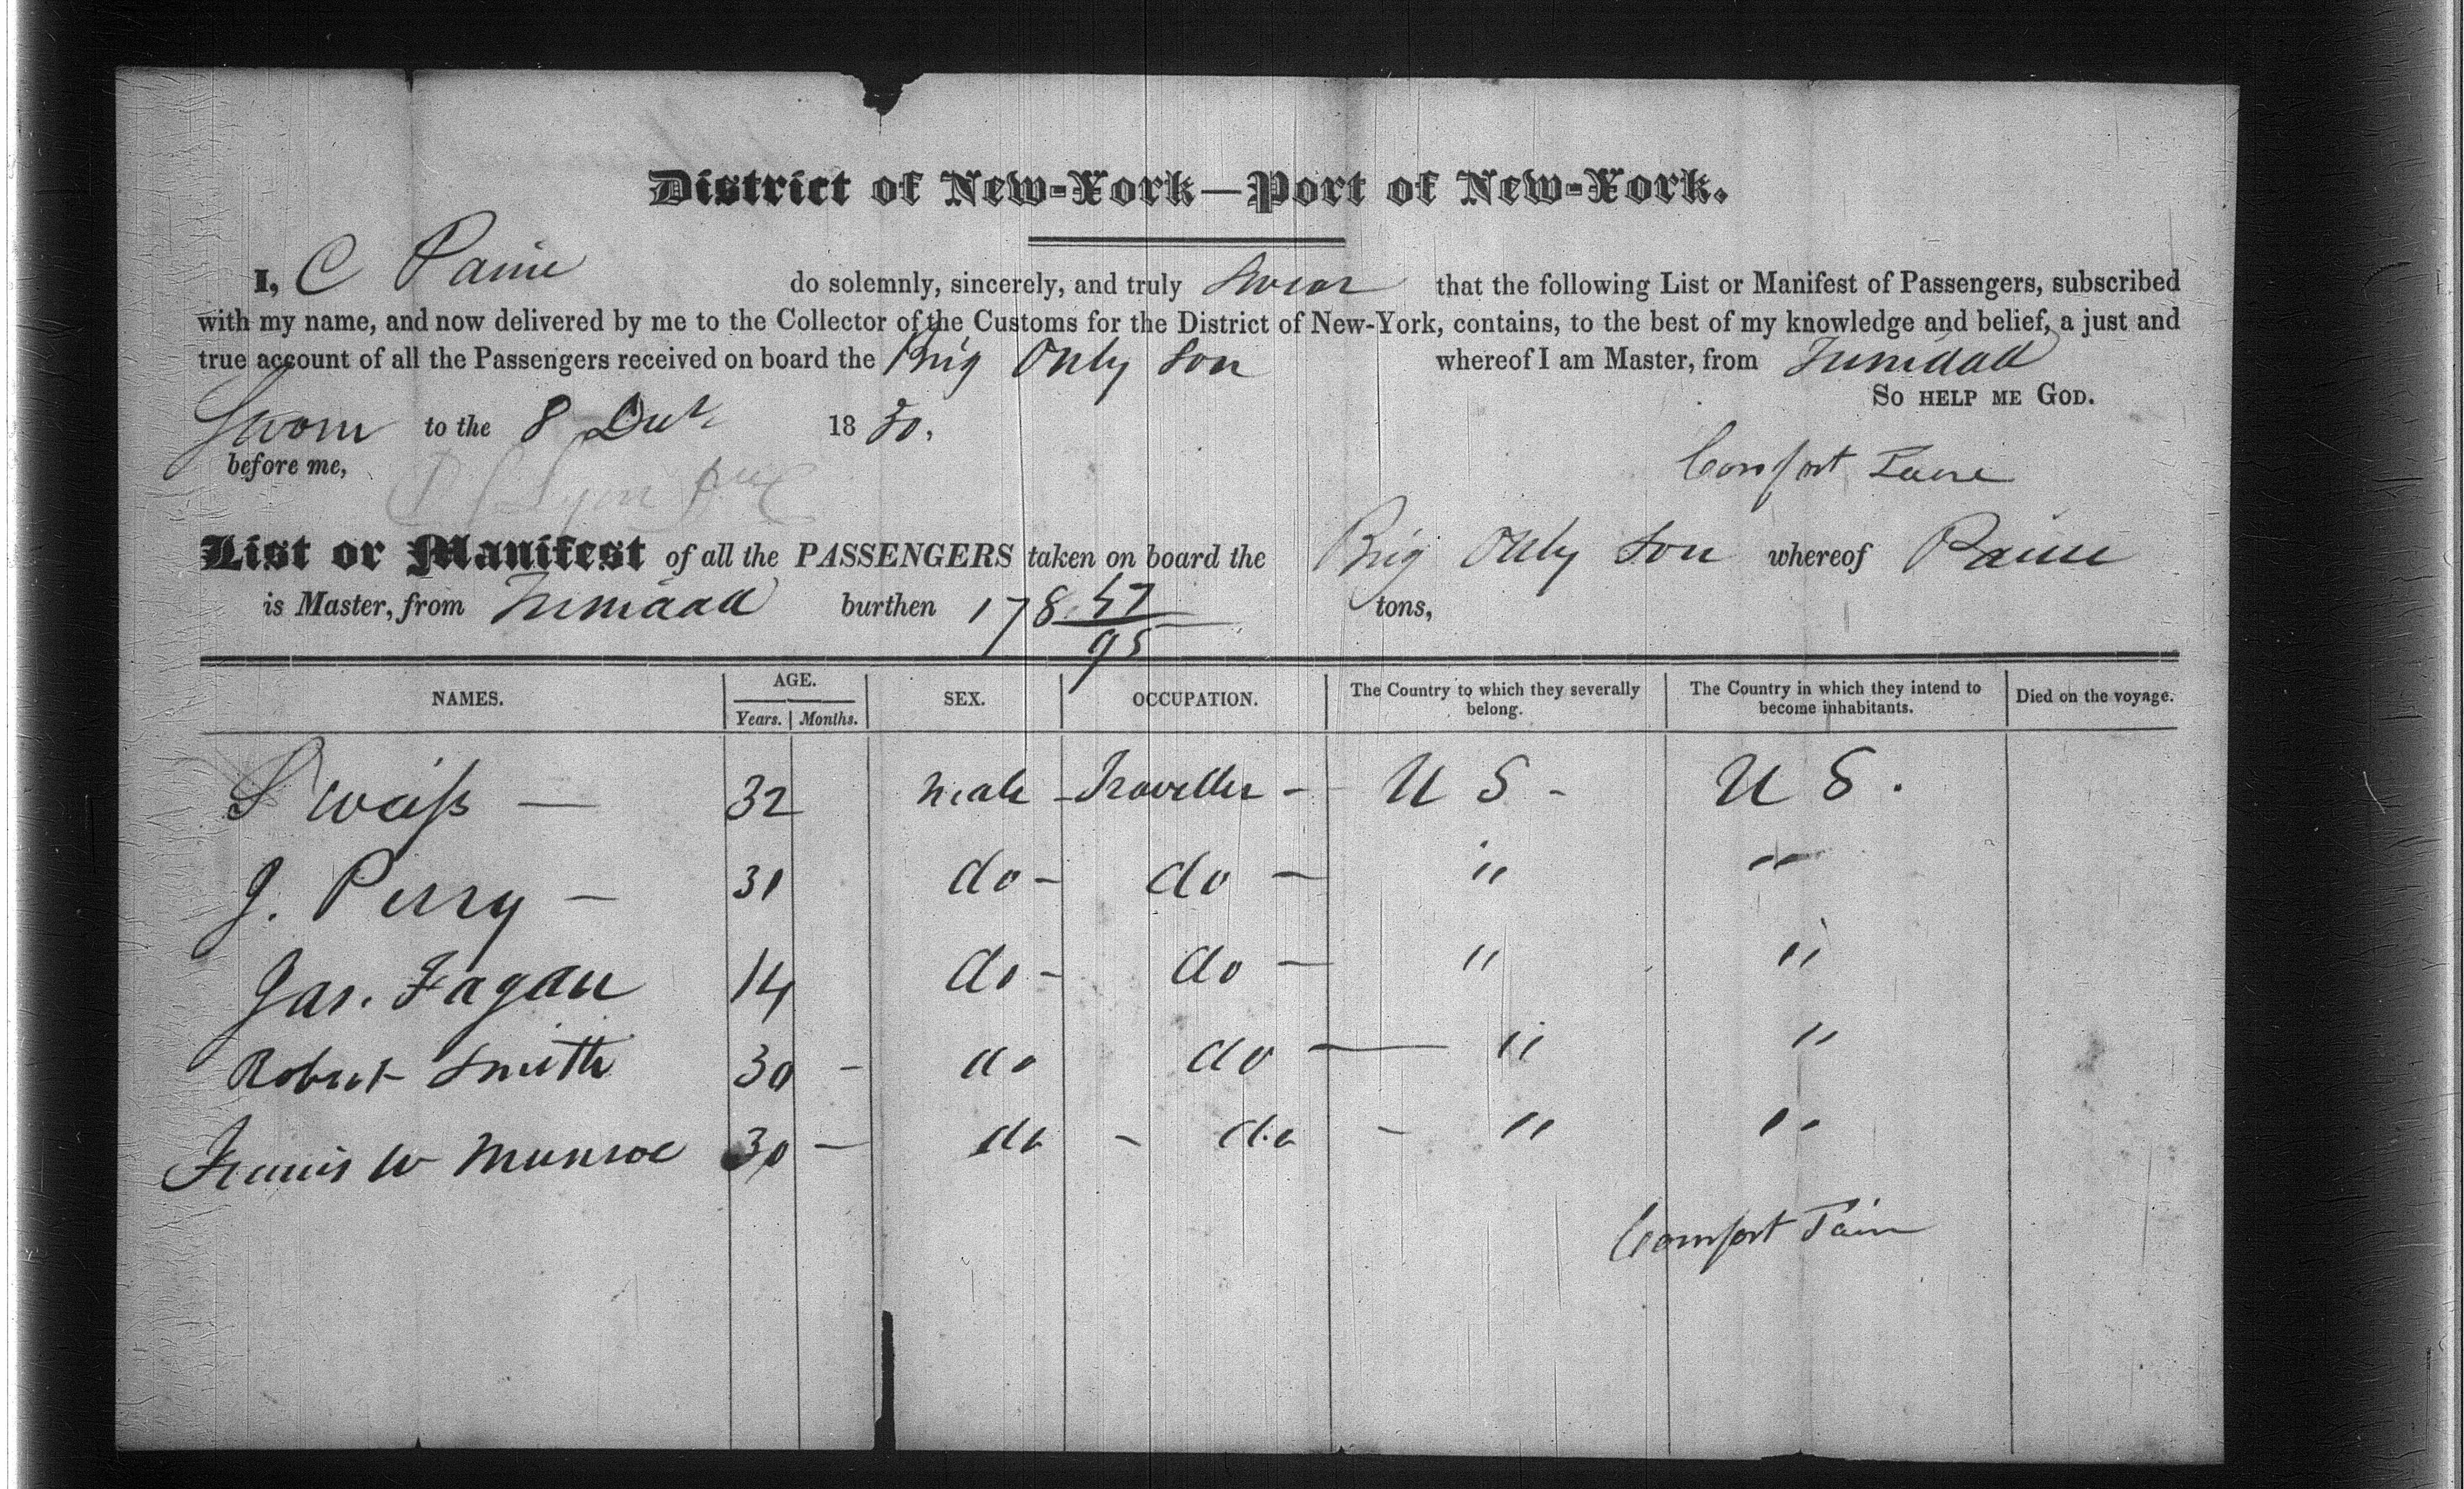 District of New-York—Port of New-York.
I, C Paine do solemnly, sincerely, and truly swear that the following List or Manifest of Passengers, subscribed
with my name, and now delivered by me to the Collector of the Customs for the District of New-York, contains, to the best of my knowledge and belief, a just and
true account of all the Passengers received on board the Brig Only Son whereof I am Master, from Trinidad
So help me God.
Sworn to the 8 18 30,
before me, Comfort Paine
List or Manifest of all the PASSENGERS taken on board the Brig Only Son whereof Paine
is Master, from Trinidad burthen 178 57/95 tons,
NAMES. AGE. Years. Months. SEX. OCCUPATION. The Country to which they severally belong. The Country in which they intend to become inhabitants. Died on the voyage.
S Weiss — 32 male - Traveller - U S - U S.
J. Perry — 31 do - do — " "
Jas. Fagan 14 do - do — " "
Robert Smith 30 - do do — " "
Francis W Munroe 30 — do - do - " "
Comfort Pain